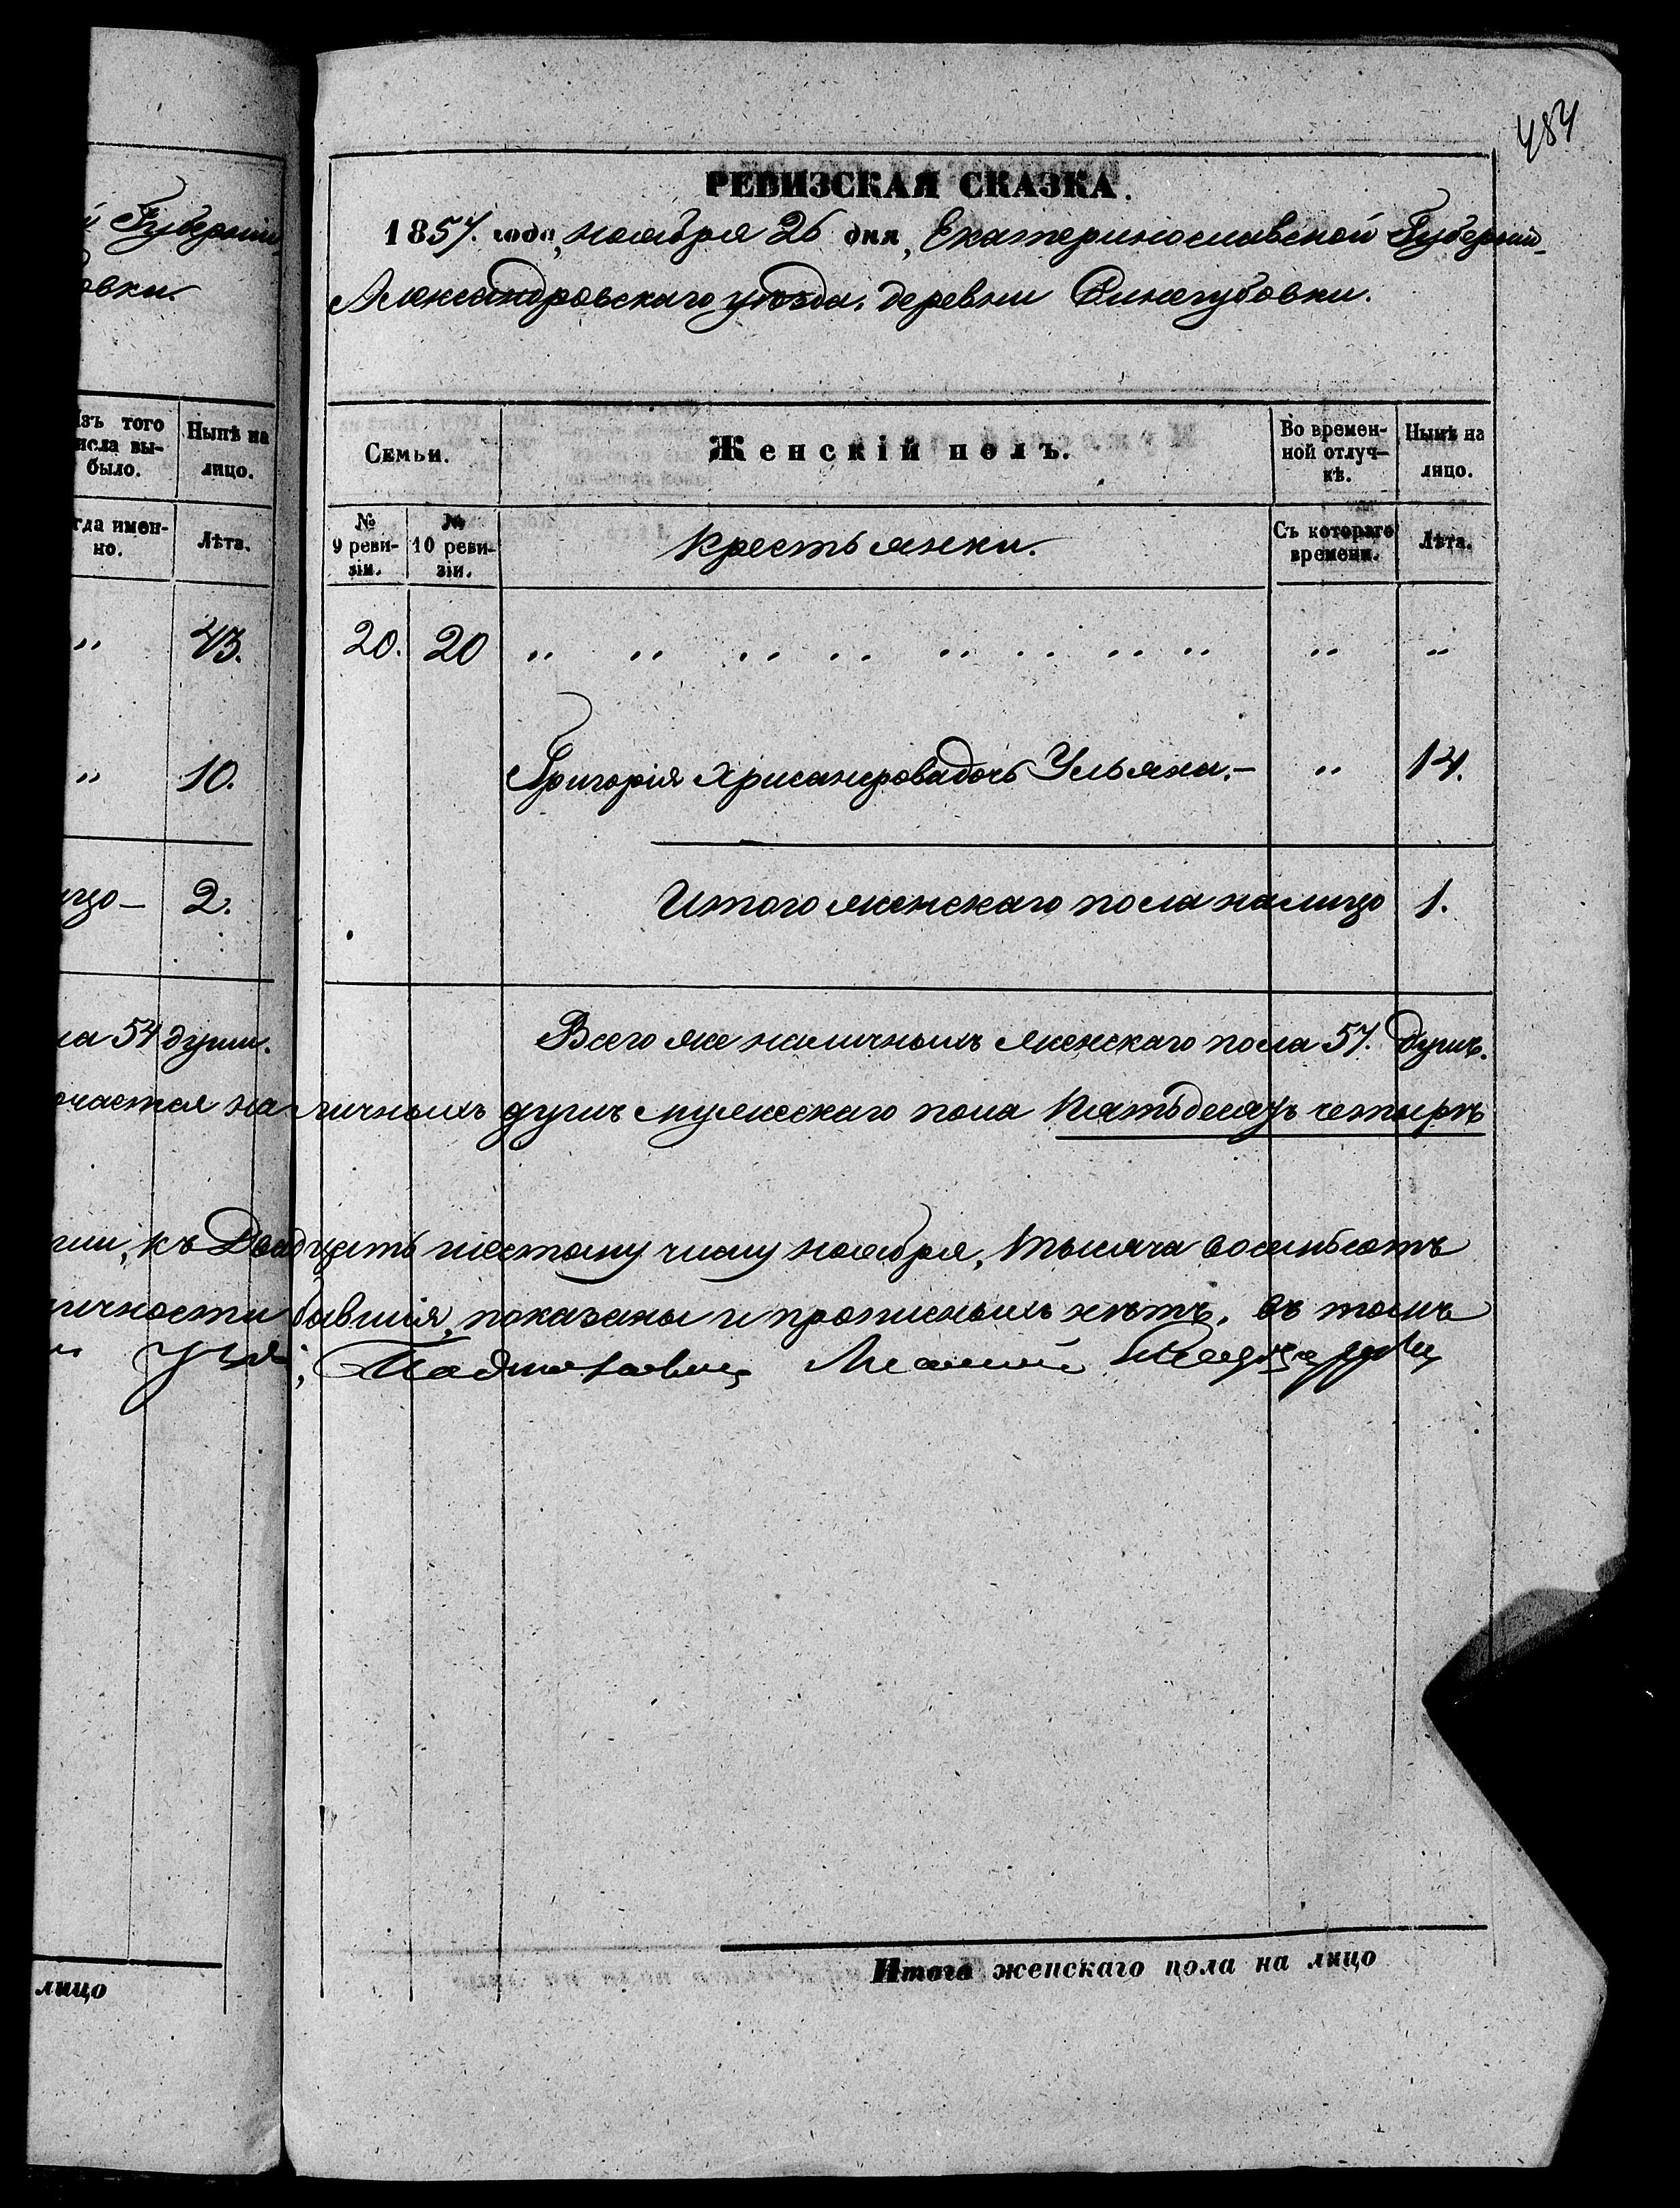 484
й Губерніи
овки.
Изъ того числа вы- было.
Нынѣ на лицо.
гда имен- но.
Лѣта.
" 43.
" 10.
ицо — 2.
ла 54 души.
лицо
РЕВИЗСКАЯ СКАЗКА.
1857. года, ноября 26 дня, Екатеринославской Губерніи
Александровскаго уѣзда, деревни Синегубовки.
Семьи.
Женскій полъ.
Во времен- ной отлуч- кѣ.
Нынѣ на лицо.
№ 9 реви- зіи.
№ 10 реви- зіи.
Крестьянки.
Съ котораго времени.
Лѣта.
20. 20 " " " " " " " " " "
Григорія Хрисанфова дочь Ульяна. — " 14.
Итого женскаго пола налицо 1.
Всего же наличныхъ женскаго пола 57. душъ.
очается наличныхъ душъ мужескаго пола Пятьдесятъ четыре
къ Двадцать шестому числу ноября, тысяча восемьсотъ
личности бавшія, показаны и прописныхъ нѣтъ, въ томъ
Итого женскаго пола на лицо